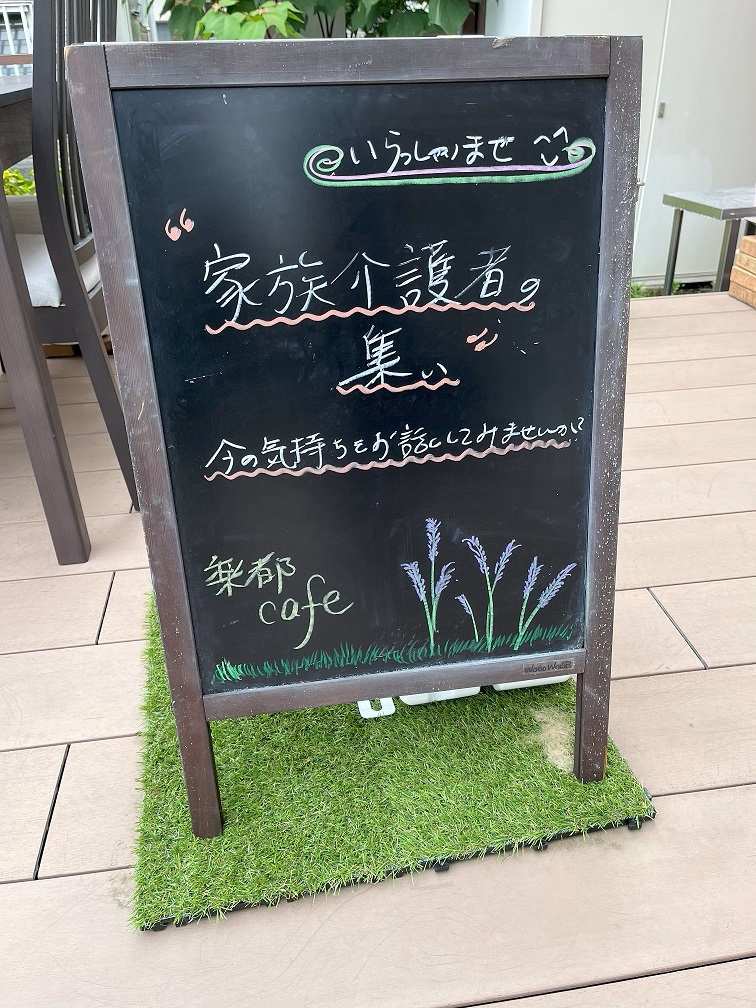 いらっしゃいませ ^^
“家族介護者の
集い”
今の気持ちをお話ししてみませんか!?
楽都
cafe